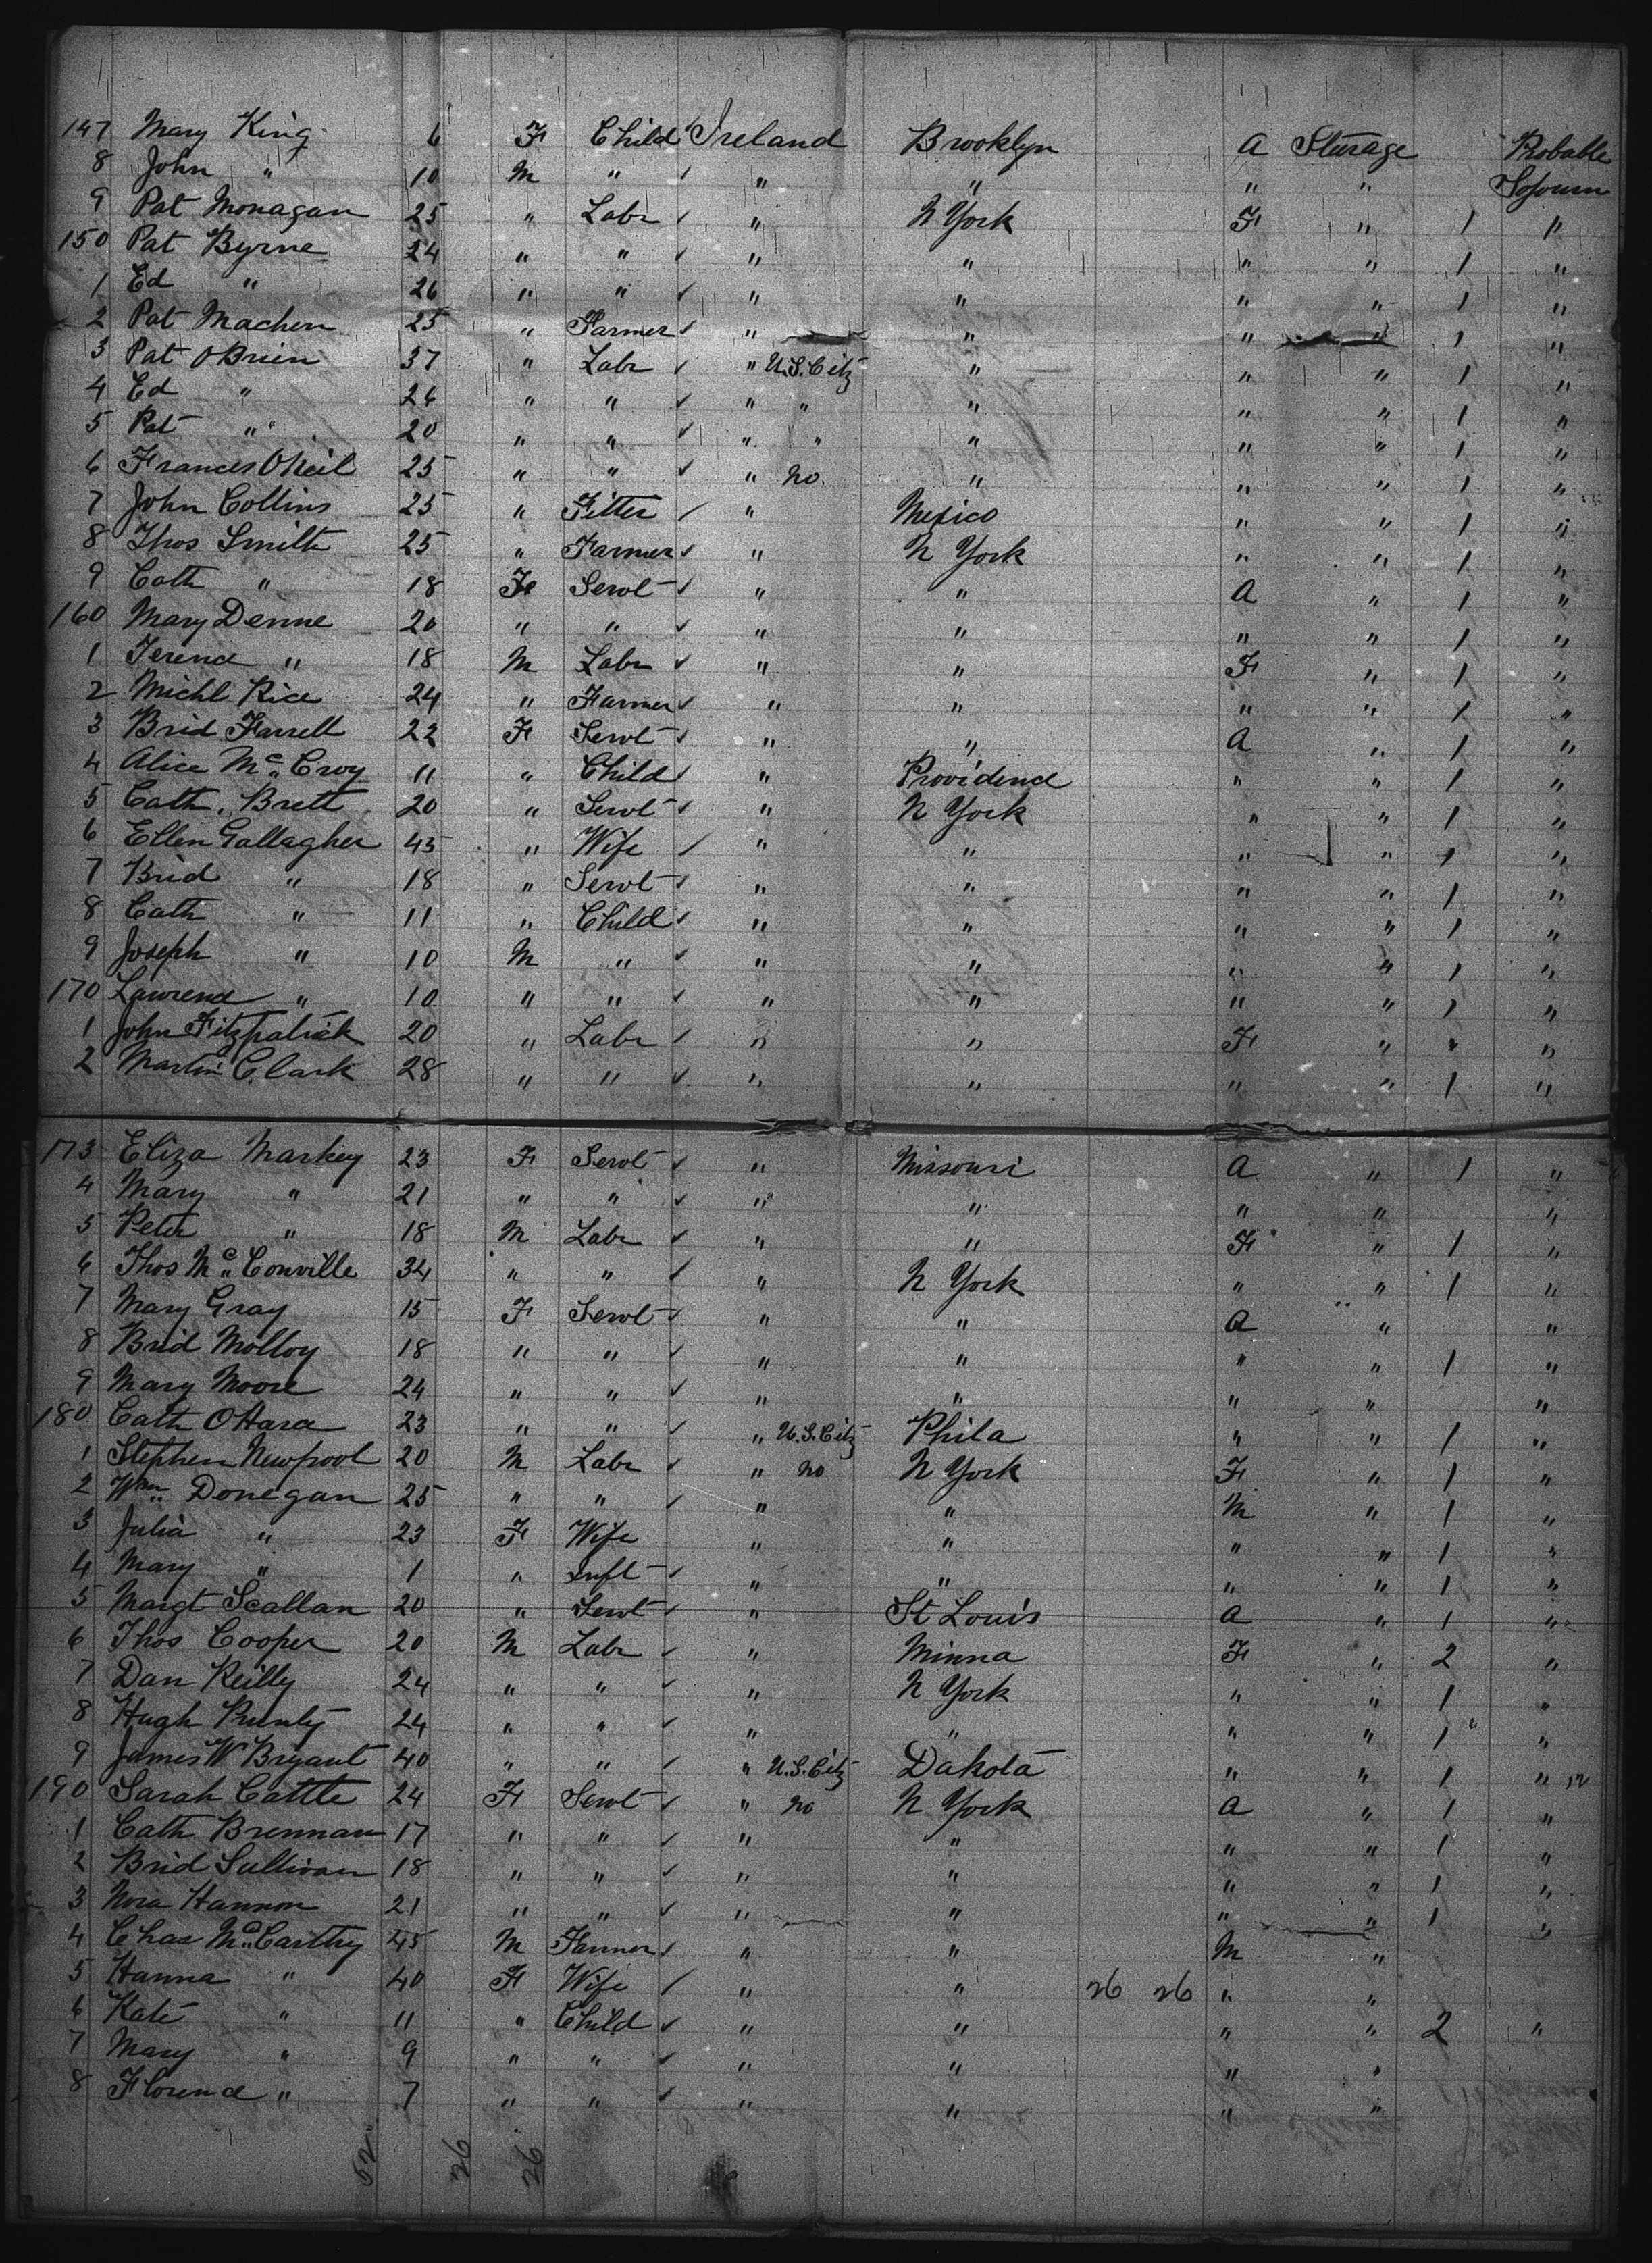 147 Mary King 6 F Child Ireland Brooklyn A Sterage Probable
8 John " 10 M " " " " " Sojourn
9 Pat Monagan 25 " Labr " N York F " 1 "
150 Pat Byrne 24 " " " " " " 1 "
1 Ed " 26 " " " " " " 1 "
2 Pat Machen 25 " Farmer " " " " 1 "
3 Pat OBrien 37 " Labr " U.S. Citz " " " 1 "
4 Ed " 26 " " " " " " " 1 "
5 Pat " 20 " " " " " " " 1 "
6 Frances ONeil 25 " " " no. " " " 1 "
7 John Collins 25 " Fitter " Mexico " " 1 "
8 Thos Smith 25 " Farmer " N York " " 1 "
9 Cath " 18 F Servt " " A " 1 "
160 Mary Denne 20 " " " " " " 1 "
1 Terence " 18 M Labr " " F " 1 "
2 Michl Rice 24 " Farmer " " " " 1 "
3 Brid Farrell 22 F Servt " " A " 1 "
4 Alice Mc Croy 11 " Child " Providence " " 1 "
5 Cath. Brett 20 " Servt " N York " " 1 "
6 Ellen Gallagher 45 " Wife " " " " 1 "
7 Brid " 18 " Servt " " " " 1 "
8 Cath " 11 " Child " " " " 1 "
9 Joseph " 10 M " " " " " 1 "
170 Lawrence " 10 " " " " " " 1 "
1 John Fitzpatrick 20 " Labr " " F " " "
2 Martin Clark 28 " " " " " " 1 "
173 Eliza Markey 23 F Servt " Missouri A " 1 "
4 Mary " 21 " " " " " " "
5 Peter " 18 M Labr " " F " 1 "
6 Thos Mc Conville 34 " " " N York " " 1 "
7 Mary Gray 15 F Servt " " A " "
8 Brid Molloy 18 " " " " " " 1 "
9 Mary Moore 24 " " " " " " "
180 Cath OHara 23 " " " U.S. Citz Phila " " 1 "
1 Stephen Newpool 20 M Labr " no N York F " 1 "
2 Wm Donegan 25 " " " " M " 1 "
3 Julia " 23 F Wife " " " " 1 "
4 Mary " 1 " Inft " " " " 1 "
5 Margt Scallan 20 " Servt " St Louis A " 1 "
6 Thos Cooper 20 M Labr " Minna F " 2 "
7 Dan Reilly 24 " " " N York " " 1 "
8 Hugh 24 " " " " " " 1 "
9 James W Bryant 40 " " " U.S. Citz Dakota " " 1 "
190 Sarah Cattle 24 F Servt " no N York A " 1 "
1 Cath Brennan 17 " " " " " " 1 "
2 Brid Sullivan 18 " " " " " " 1 "
3 Nora Hannon 21 " " " " " " 1 "
4 Chas McCarthy 45 M Farmer " " M "
5 Hanna " 40 F Wife " " 26 26 " "
6 Kate " 11 " Child " " " " 2 "
7 Mary " 9 " " " " " "
8 Florence " 7 " " " " " "
52 26 26